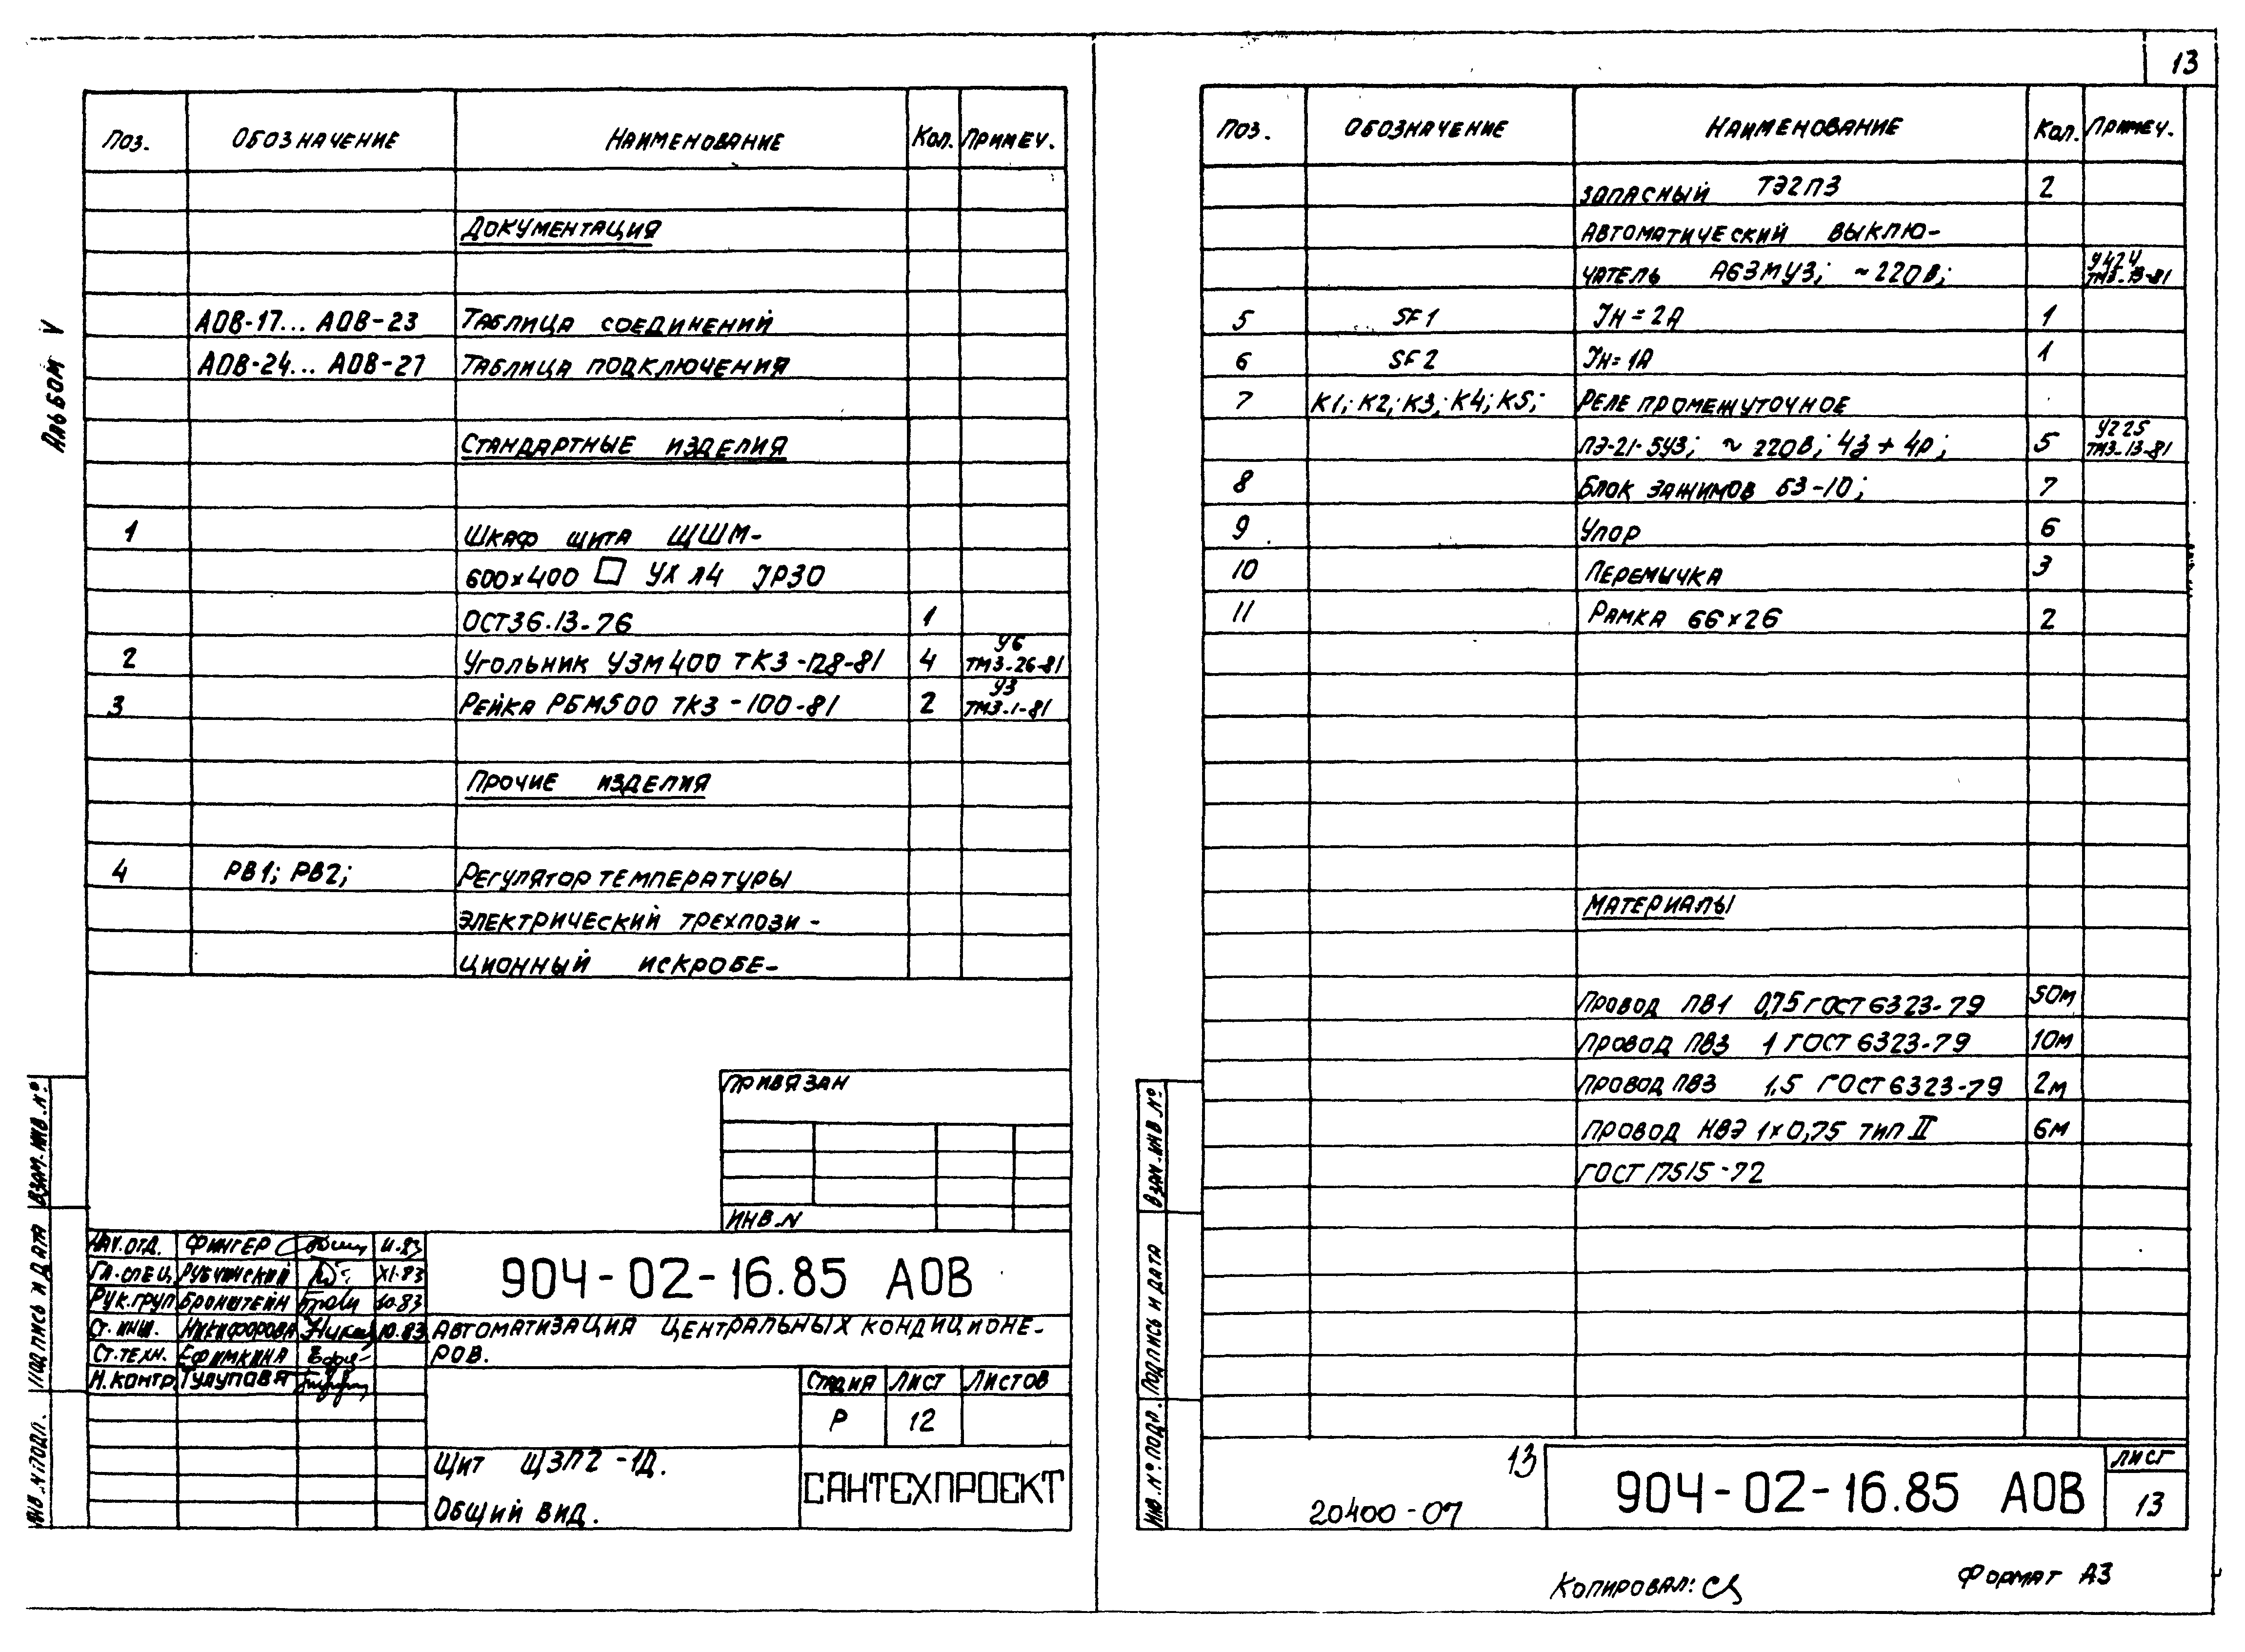 13
Альбом V
Поз. Обозначение Наименование Кол. Примеч.
Документация
АОВ-17... АОВ-23 Таблица соединений
АОВ-24... АОВ-27 Таблица подключения
Стандартные изделия
1 Шкаф щита ЩШМ-
600х400 □ УХЛ4 IP30
ОСТ36.13-76 1
2 Угольник УЗМ400 ТКЗ-128-81 4 У6 ТМ3-26-81
3 Рейка РБМ500 ТКЗ-100-81 2 У3 ТМ3-1-81
Прочие изделия
4 РВ1; РВ2; Регулятор температуры
электрический трехпози-
ционный искробе-
Привязан
Инв.N
Нач.отд. Фингер 11.83
Гл.спец. Рубчинский XI.83
Рук.груп Бронштейн 10.83
Ст.инж. Никифорова 10.83
Ст.техн. Ефимкина
Н.контр. Тулупова
904-02-16.85 АОВ
Автоматизация центральных кондиционе-
ров.
Стадия Лист Листов
Р 12
Щит ЩЗП2-1Д.
Общий вид.
САНТЕХПРОЕКТ
Взам.инв.№
Подпись и дата
Инв.№подл.
Поз. Обозначение Наименование Кол. Примеч.
запасный ТЭ2П3 2
Автоматический выклю-
чатель А63МУ3; ~220В; У424 ТМ3-13-81
5 SF1 Iн=2А 1
6 SF2 Iн=1А 1
7 К1; К2; К3; К4; К5; Реле промежуточное
ПЭ-21-5У3; ~220В; 4з+4р; 5 У225 ТМ3-13-81
8 Блок зажимов БЗ-10; 7
9 Упор 6
10 Перемычка 3
11 Рамка 66х26 2
Материалы
Провод ПВ1 0,75 ГОСТ6323-79 50м
Провод ПВ3 1 ГОСТ6323-79 10м
Провод ПВ3 1,5 ГОСТ6323-79 2м
Провод НВЭ 1х0,75 тип II 6м
ГОСТ 17515-72
Взам.инв.№
Подпись и дата
Инв.№подл.
13
20400-07
904-02-16.85 АОВ
Лист
13
Копировал:
Формат А3